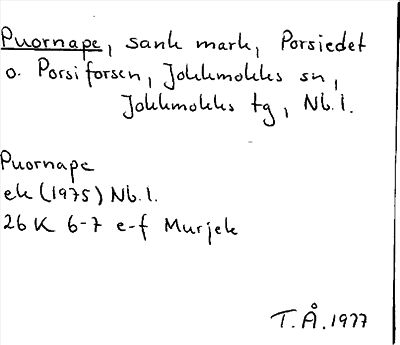 Puornape, sank mark, Porsiedet
o. Porsiforsen, Jokkmokks sn,
Jokkmokks tg, Nb.l.
Puornape
ek (1975) Nb.l.
26 K 6-7 e-f Murjek
T.Å. 1977